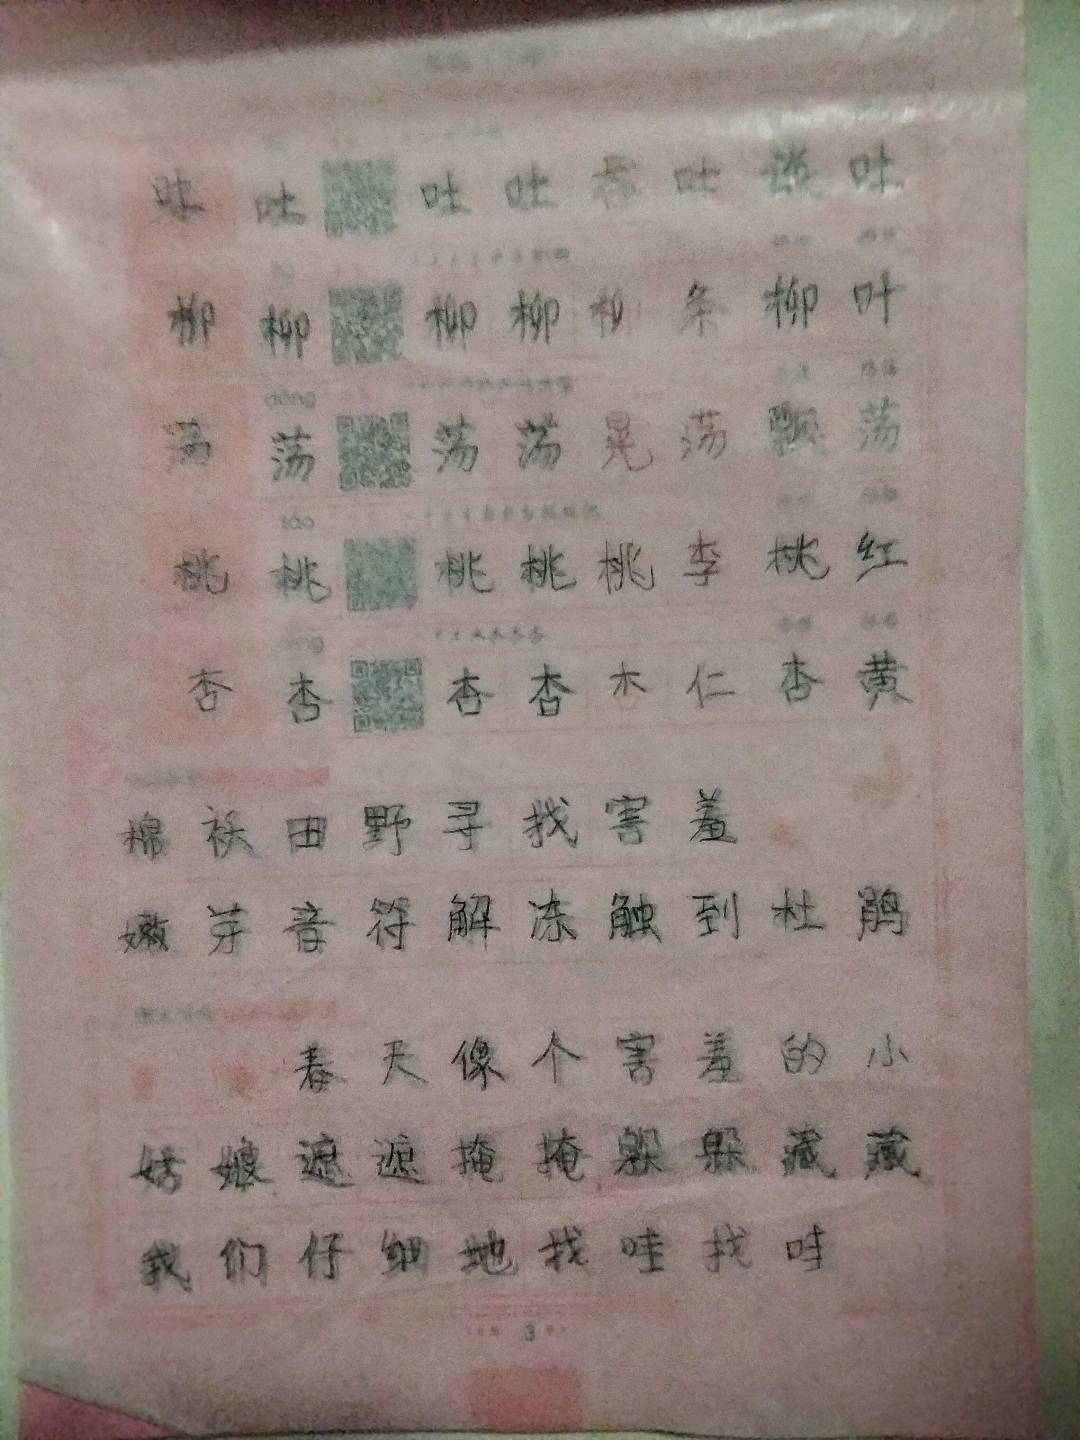 吐 吐 吐 吐 吞 吐 谈 吐
柳 柳 柳 柳 柳 条 柳 叶
dàng
荡 荡 荡 荡 晃 荡 飘 荡
táo
桃 桃 桃 桃 桃 李 桃 红
杏 杏 杏 杏 木 仁 杏 黄
棉 袄 田 野 寻 找 害 羞
嫩 芽 音 符 解 冻 触 到 杜 鹃
春 天 像 个 害 羞 的 小
姑 娘 遮 遮 掩 掩 躲 躲 藏 藏
我 们 仔 细 地 找 哇 找 哇
3